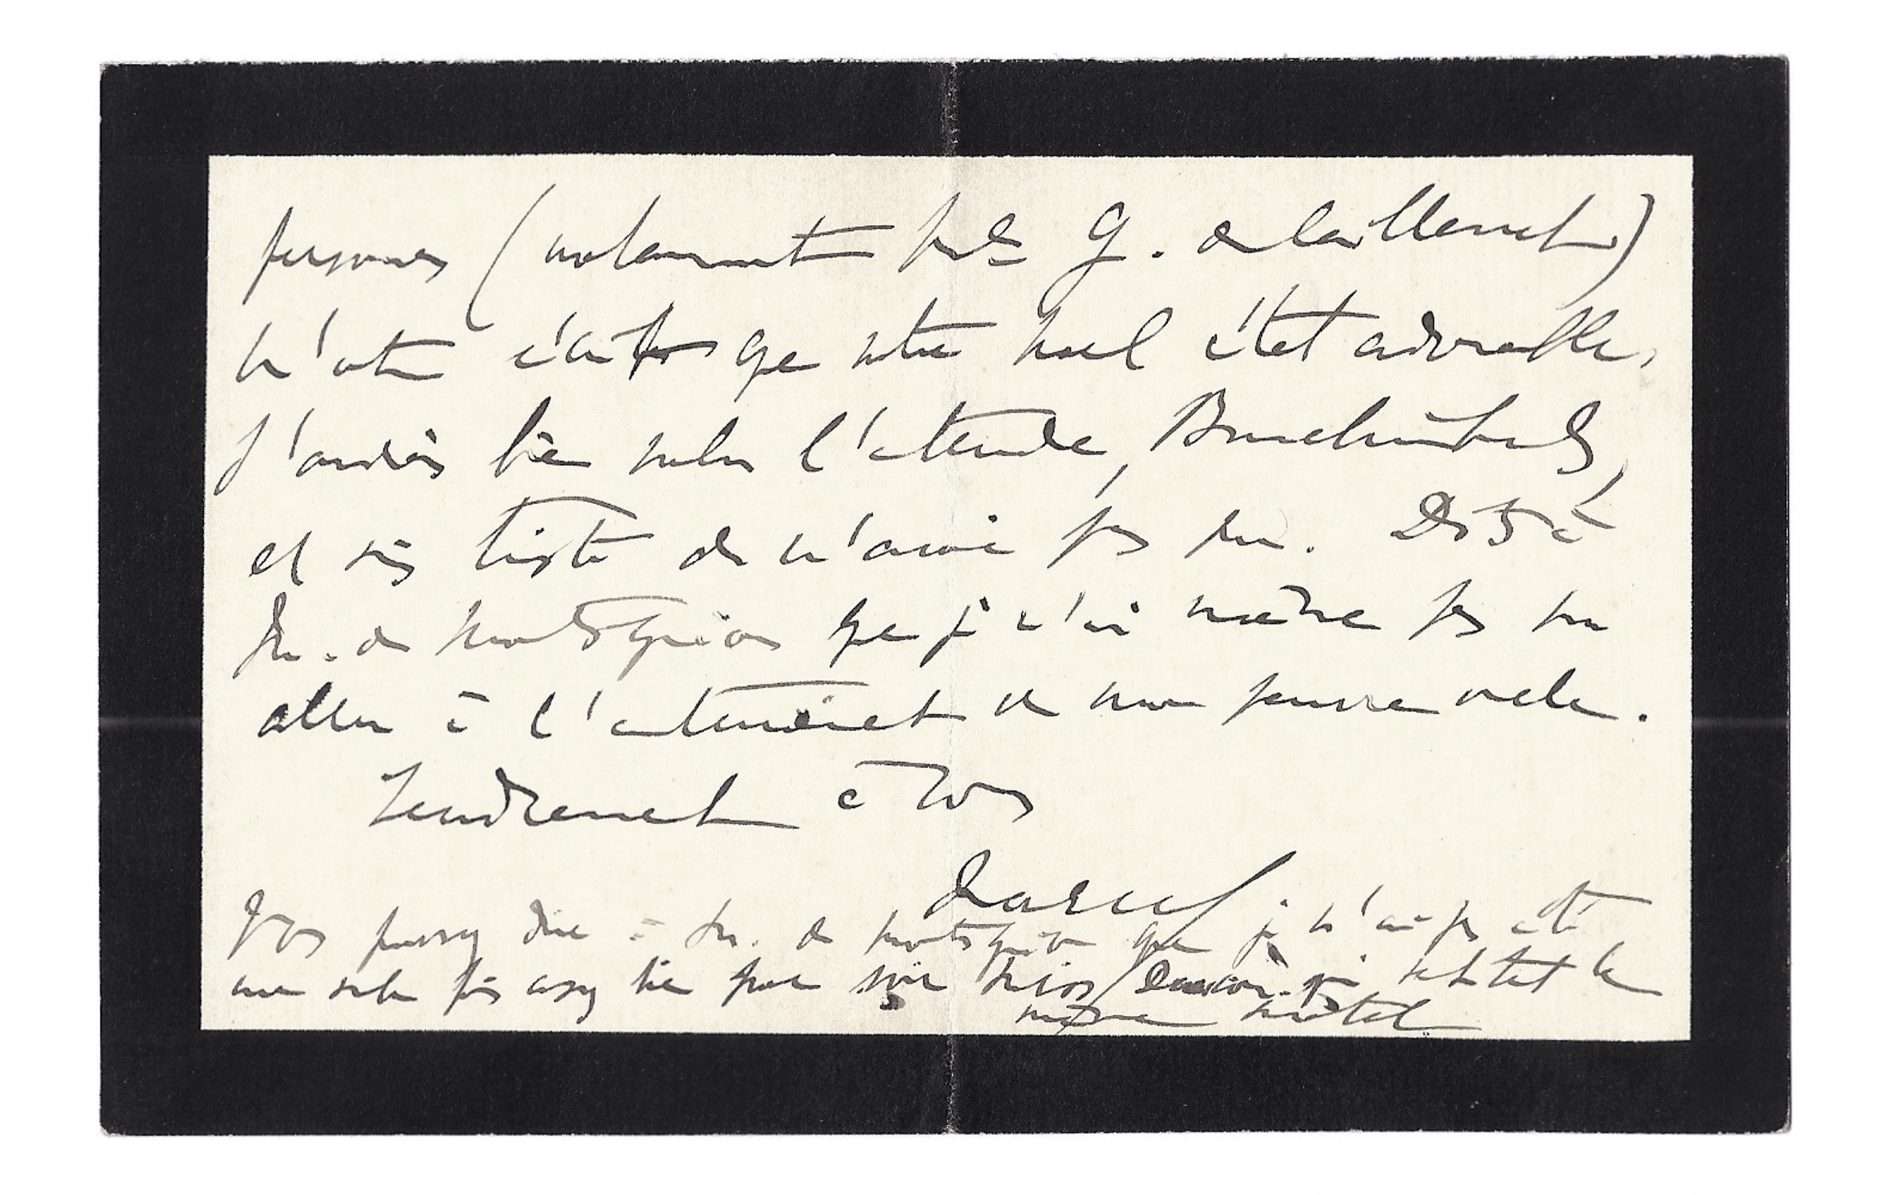 personnes (notamment Me G. de Caillavet)
m'ont écrit que votre Noel était adorable.
J'aurais bien voulu l'entendre, Bunchnibuls,
et suis triste de n'avoir pas pu. Dites à
M. de Montesquiou que je n'ai même pas pu
aller à l'enterrement de mon pauvre oncle.
Tendrement à vous
Marcel
Vous pouvez dire à M. de Montesquiou que je n'ai pas été
une seule fois assez bien pour voir Miss Deacon qui habitait le
même hôtel